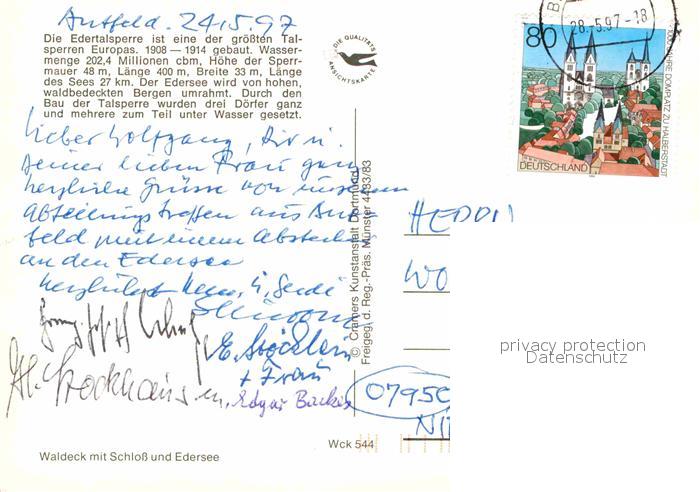 24.5.97
Die Edertalsperre ist eine der größten Tal-
sperren Europas. 1908 — 1914 gebaut. Wasser-
menge 202,4 Millionen cbm, Höhe der Sperr-
mauer 48 m, Länge 400 m, Breite 33 m, Länge
des Sees 27 km. Der Edersee wird von hohen,
waldbedeckten Bergen umrahmt. Durch den
Bau der Talsperre wurden drei Dörfer ganz
und mehrere zum Teil unter Wasser gesetzt.
DIE QUALITÄTS
ANSICHTSKARTE
28.5.97-18
80
DEUTSCHLAND
1000 JAHRE DOMPLATZ ZU HALBERSTADT
Lieber Wolfgang, Dir u.
Deiner lieben Frau ganz
herzliche Grüsse von unserem
Abteilungstreffen aus
feld mit einem Abstecher
an den Edersee
herzlichst
E.
+ Frau
H. Stockhaus
Edgar
© Cramers Kunstanstalt Dortmund
Freigeg. d. Reg.-Präs. Münster 4433/83
HEDDI
WO
0795
NI
privacy protection
Datenschutz
Wck 544
Waldeck mit Schloß und Edersee